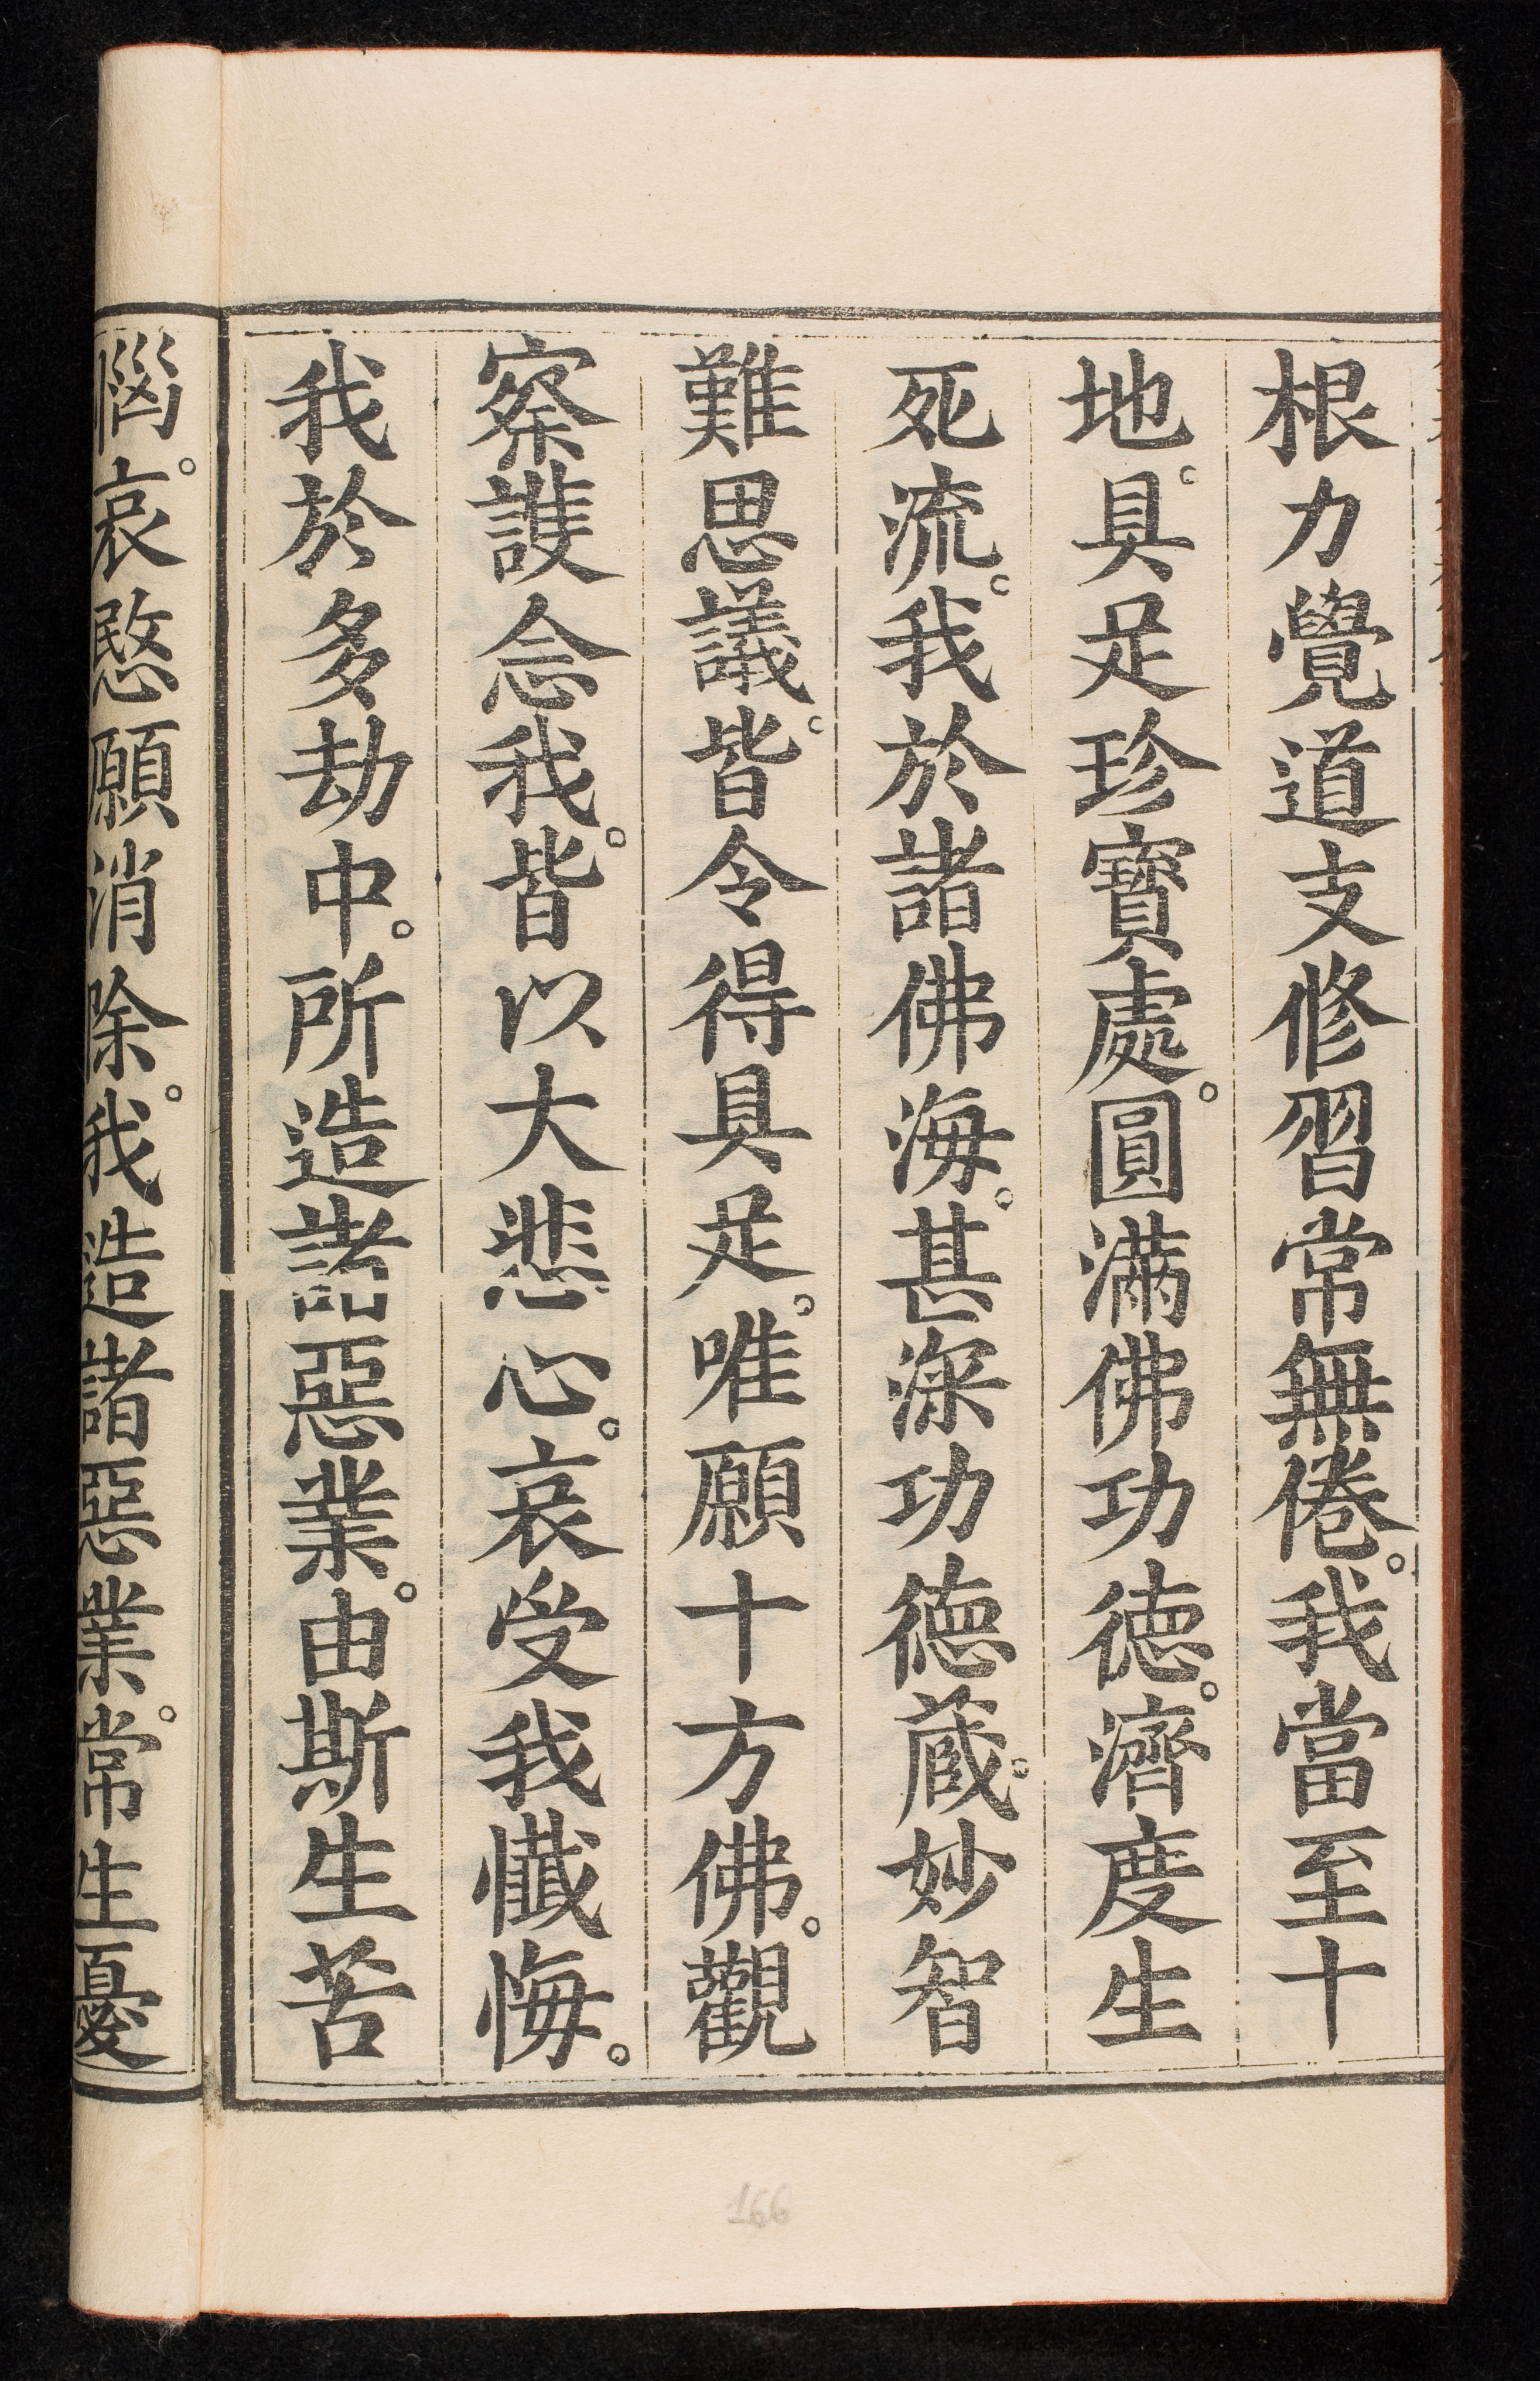 根力覺道支修習常無倦。我當至十
地。具足珍寶處。圓滿佛功德。濟度生
死流。我於諸佛海。甚深功德蔵。妙智
難思議。皆令得具足。唯願十方佛。觀
察護念我。皆以大悲心。哀受我懺悔。
我於多劫中。所造諸惡業。由斯生苦
惱。哀愍願消除。我造諸惡業。常生憂
166